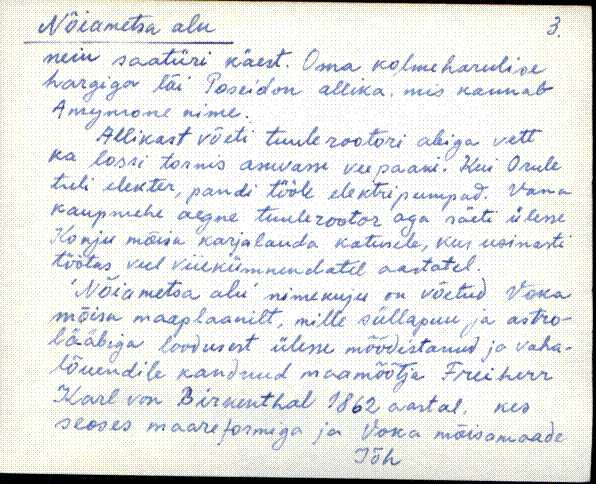 Nõiametsa alu 3.
neiu saatüri käest. Oma kolmeharulise
hargiga lõi Poseidon allika, mis kannab
Amymone nime.
Allikast võeti tuulerootori abiga vett
ka lossi tornis asuvasse veepaaki. Kui Orule
tuli elekter, pandi tööle elektripumbad. Vana
kaupmehe aegne tuulerootor aga säeti ülesse
Konju mõisa karjalauda katusele, kus usinasti
töötas veel viiekümnendatel aastatel.
'Nõiametsa alu' nimekuju on võetud Voka
mõisa maaplaanilt, mille süllapuu ja astro-
lääbiga loodusest ülesse mõõdistanud ja vaha-
lõuendile kandnud maamõõtja Freiherr
Karl von Birkenthal 1862 aastal, kes
seoses maareformiga ja Voka mõisamaade
Jõh